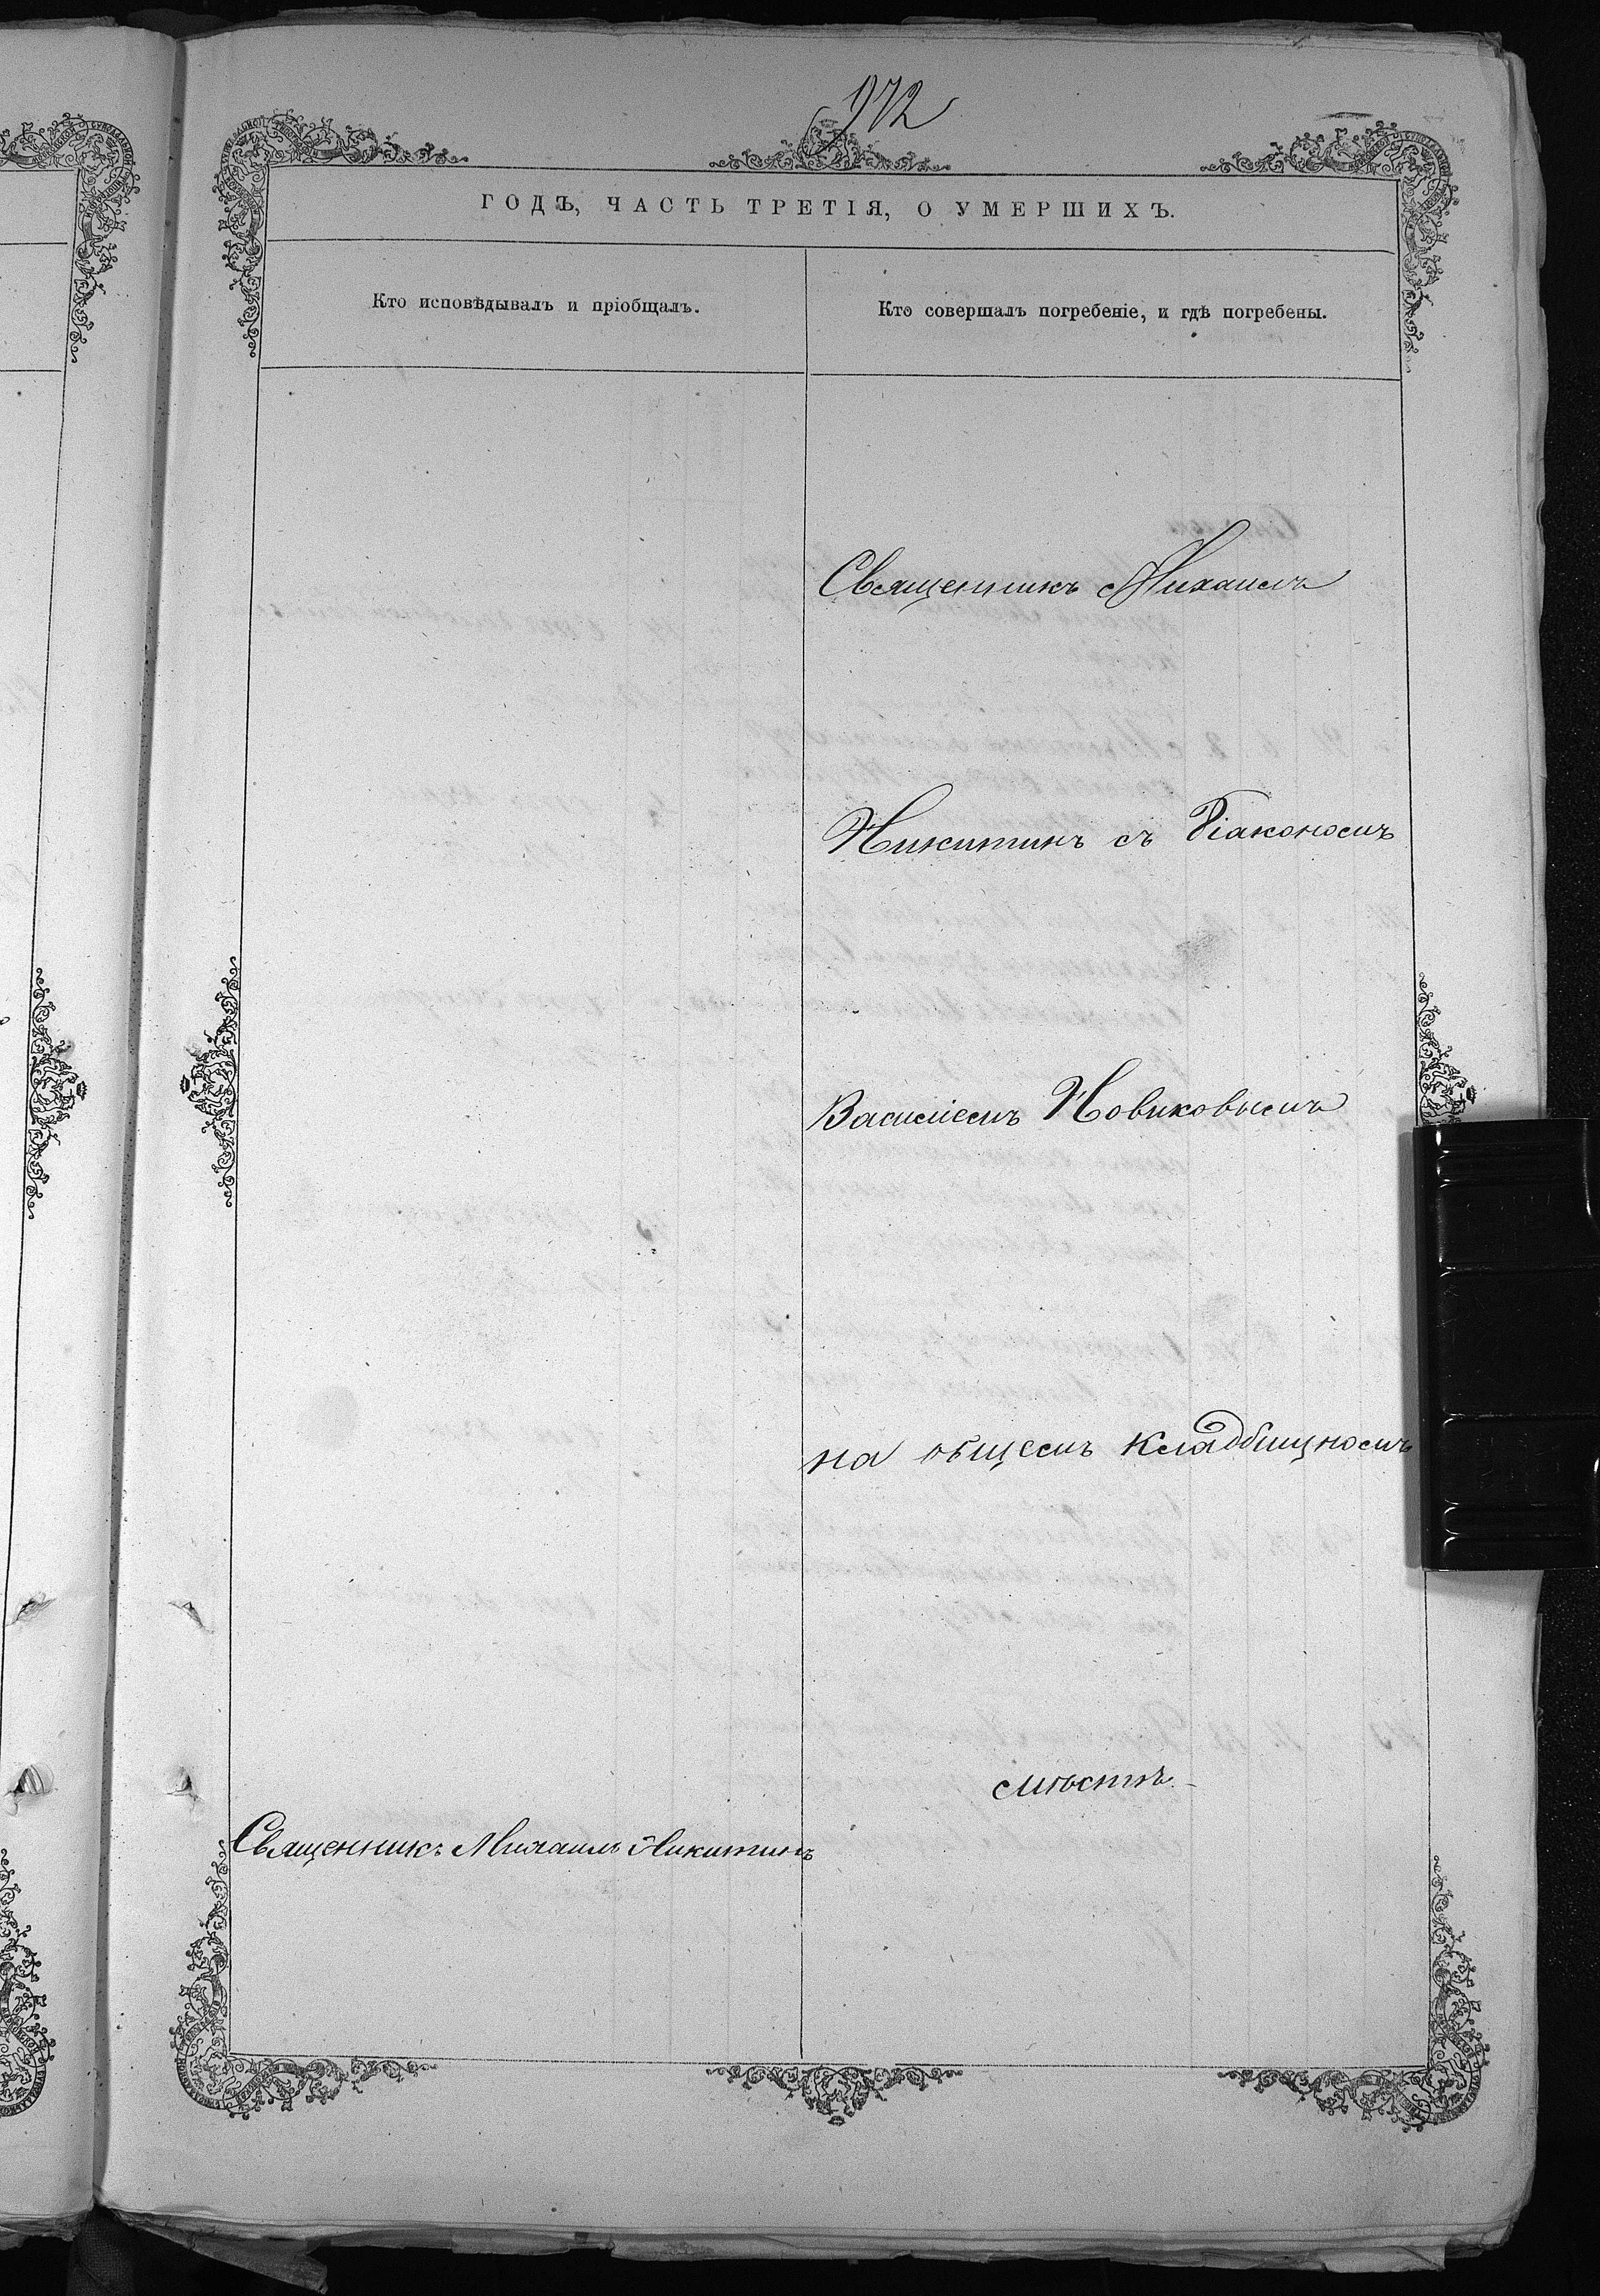 972
ГОДЪ, ЧАСТЬ ТРЕТІЯ, О УМЕРШИХЪ.
Кто исповѣдывалъ и пріобщалъ.
Кто совершалъ погребеніе, и гдѣ погребены.
Священникъ Михаилъ
Никитинъ съ Діакономъ
Василіемъ Новиковымъ
на общемъ кладбищномъ
мѣстѣ.
Священникъ Михаилъ Никитинъ